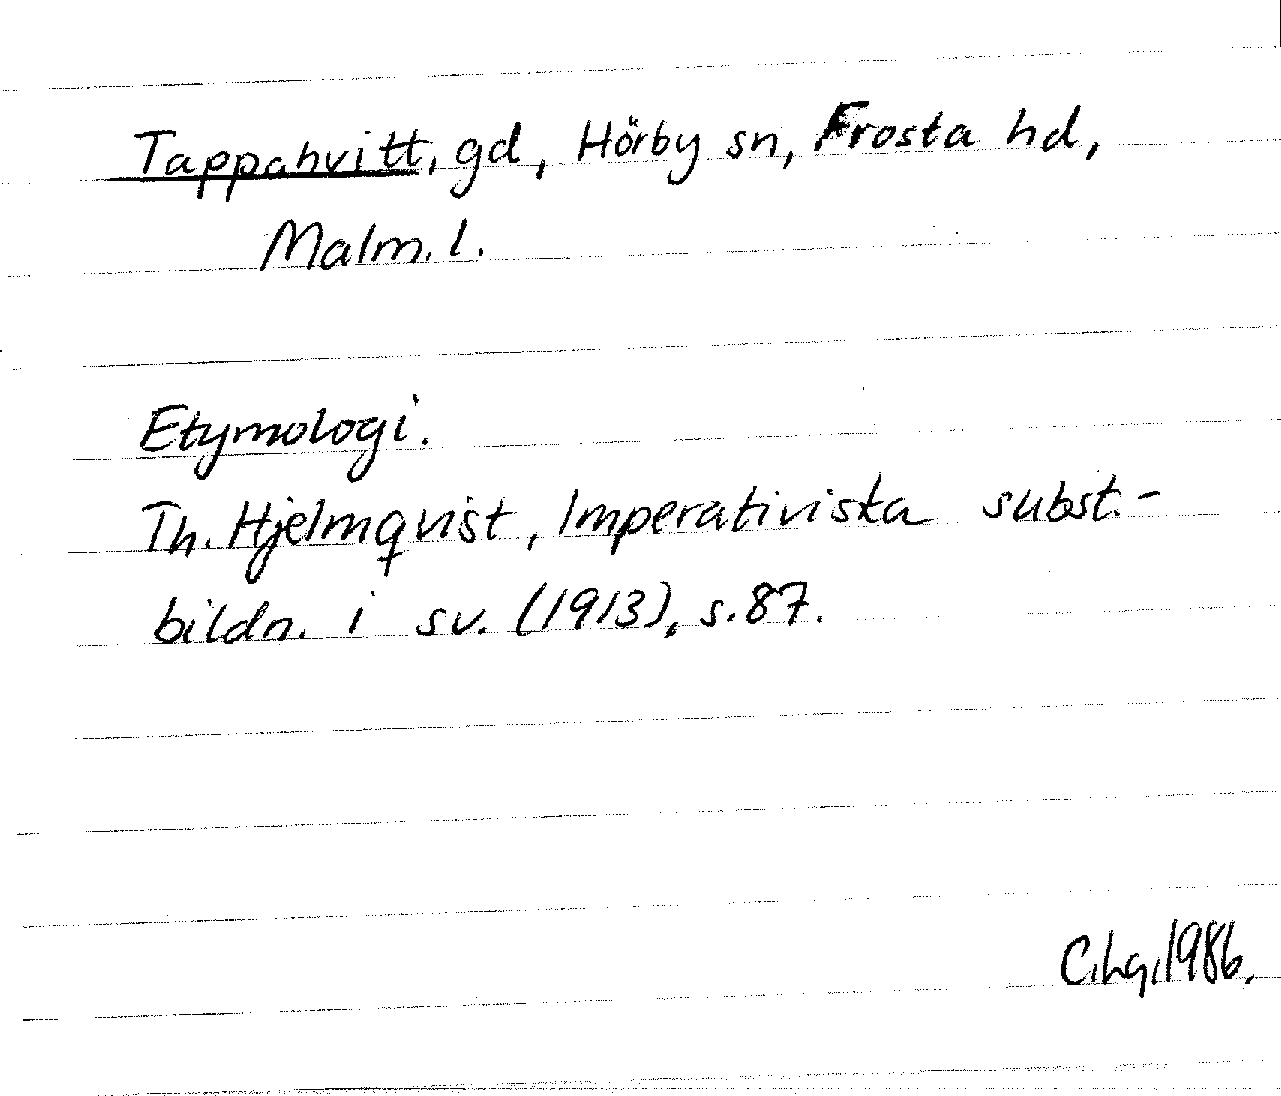 Tappahvitt, gd, Hörby sn, Frosta hd,
Malm. l.
Etymologi.
Th. Hjelmqvist, Imperativiska subst.-
bildn. i sv. (1913), s. 87.
1986.